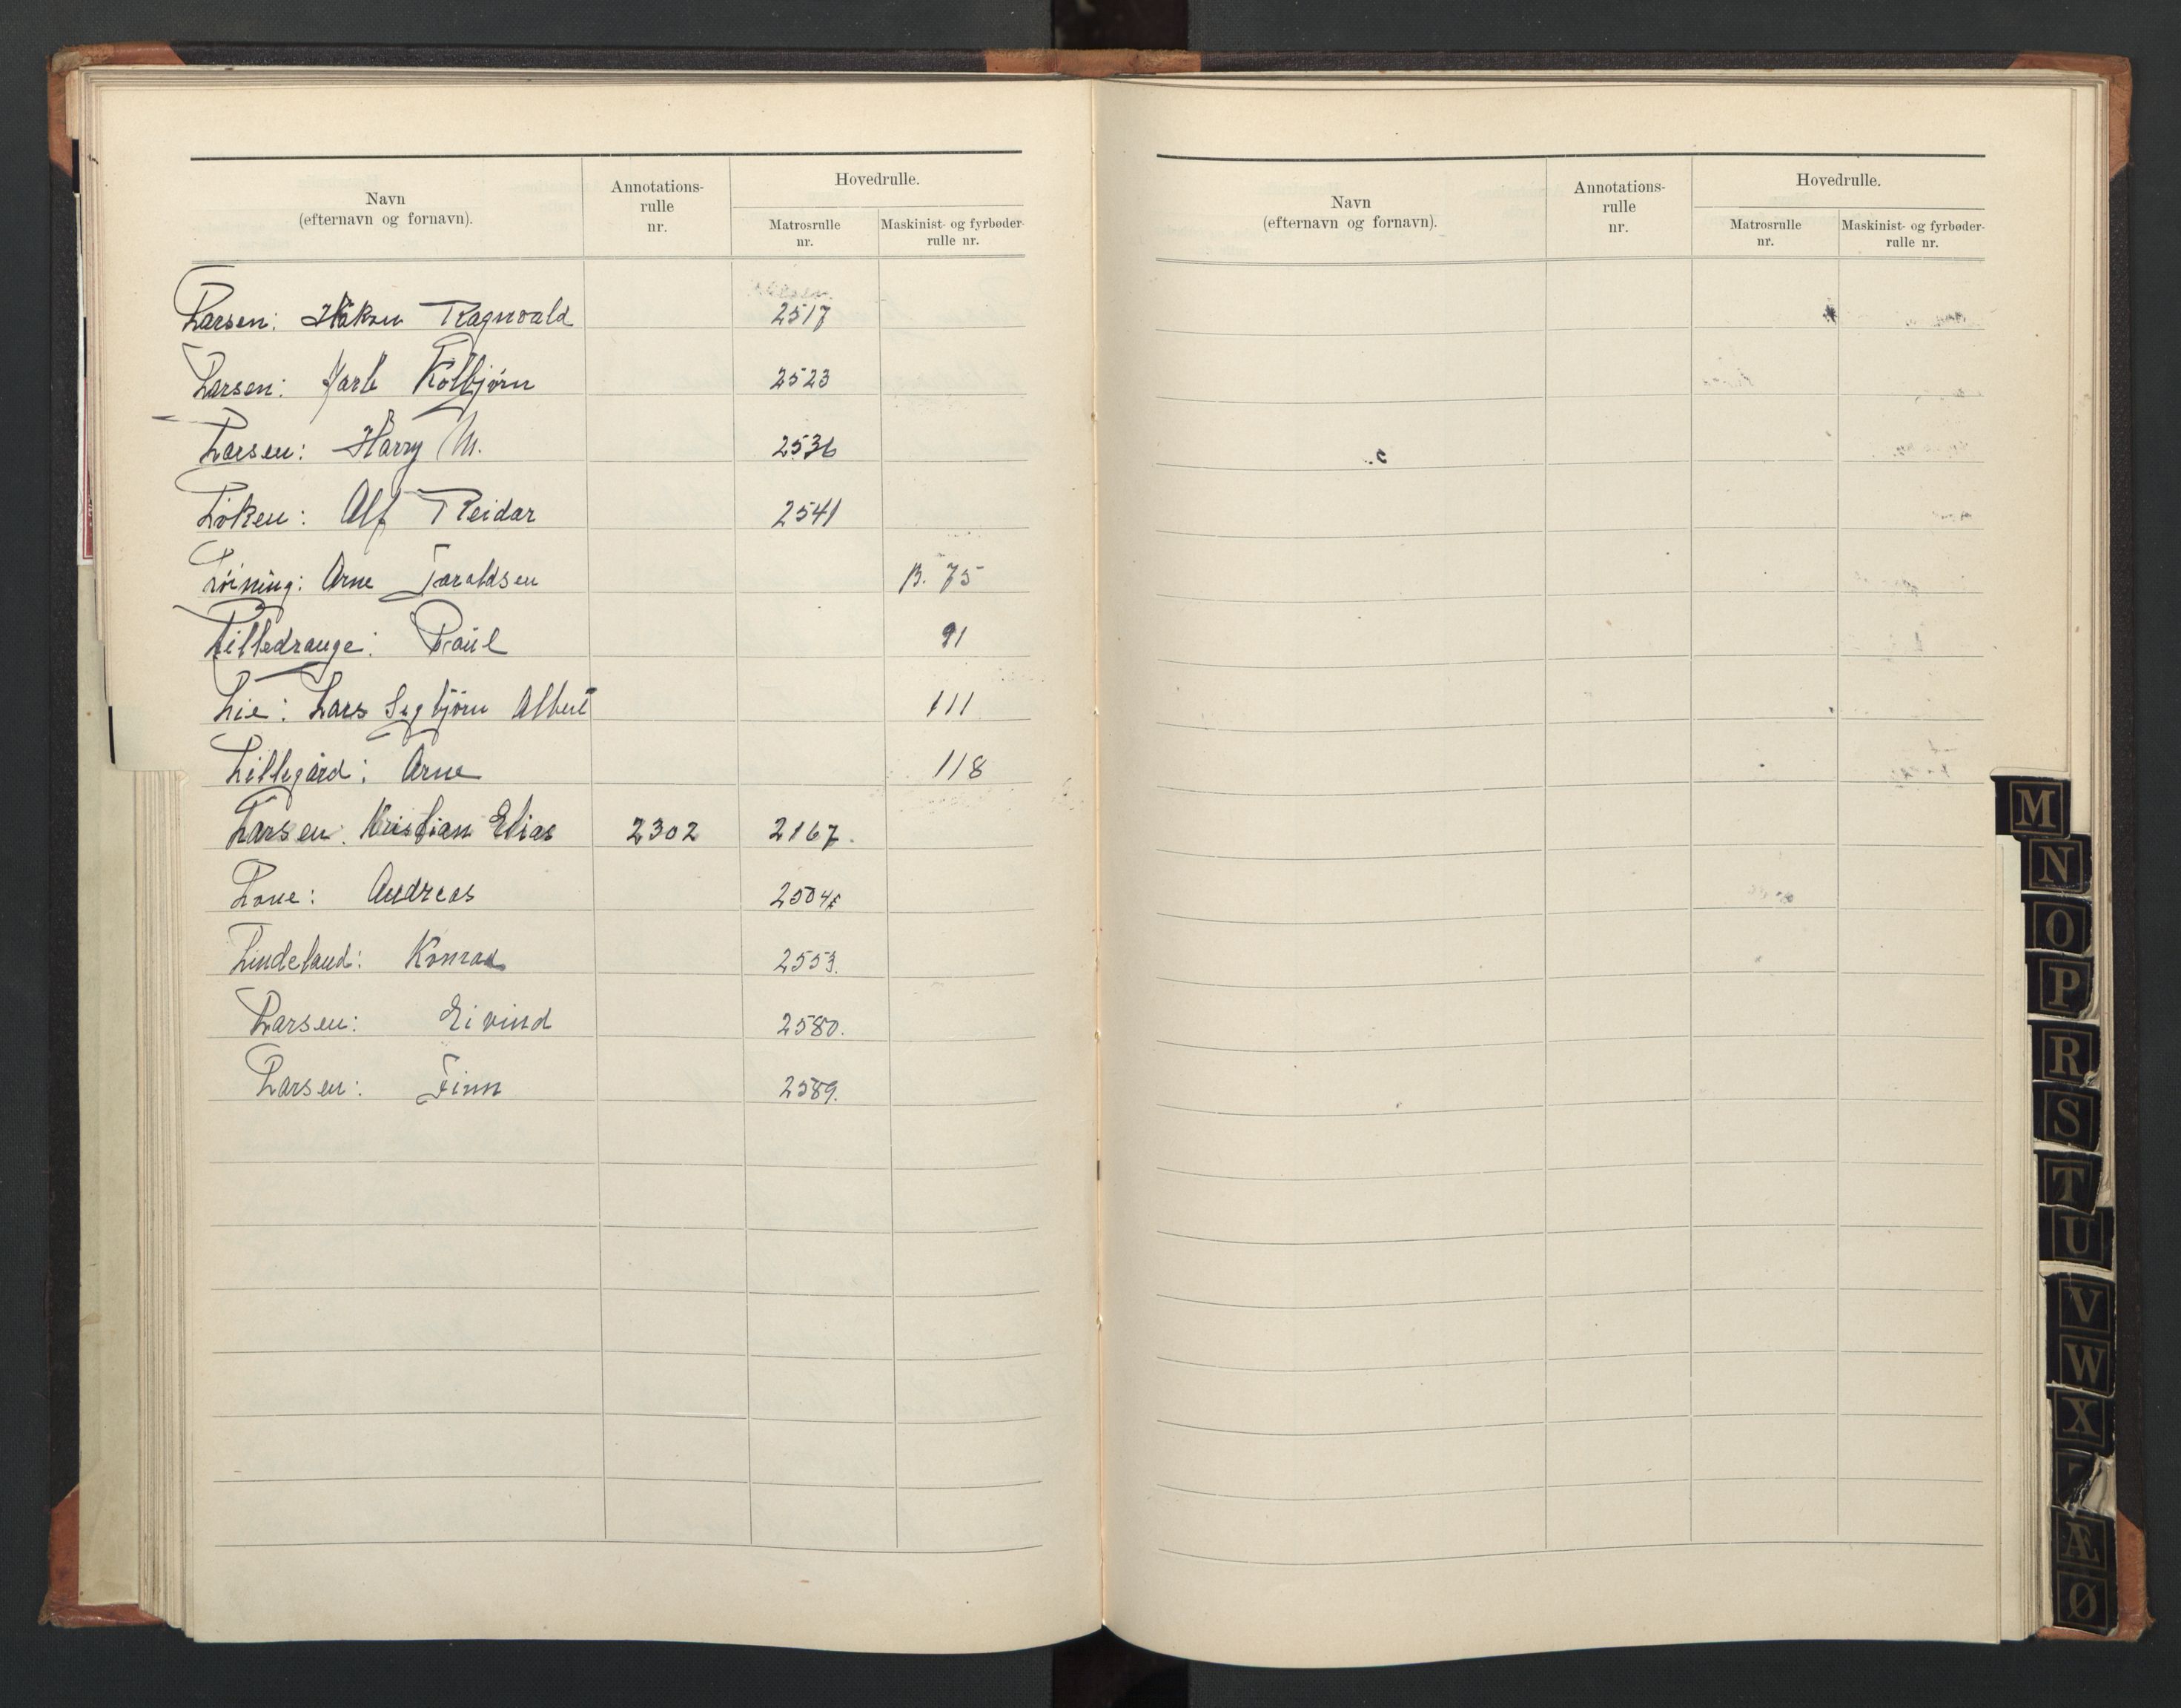 Navn
(efternavn og fornavn).
Annotations-
rulle
nr.
Hovedrulle.
Matrosrulle
nr.
Maskinist- og fyrbøder-
rulle nr.
Larsen: Håkon Ragnvald 2517
Larsen: Jarl Kolbjörn 2523
Larsen: Harry M. 2536
Löken: Alf Reidar 2541
Löining: Arne Taraldsen B. 75
Lilledrange: Paul 91
Lie: Lars Sigbjörn Albert 111
Lillegård: Arne 118
Larsen: Kristian Elias 2302 2167.
Lone: Andreas 2504
Lindeland: Konrad 2553.
Larsen: Eivind 2580.
Larsen: Finn 2589.
Navn
(efternavn og fornavn).
Annotations-
rulle
nr.
Hovedrulle.
Matrosrulle
nr.
Maskinist- og fyrbøder-
rulle nr.
M
N
O
P
R
S
T
U
V
W
X
Æ
Ø